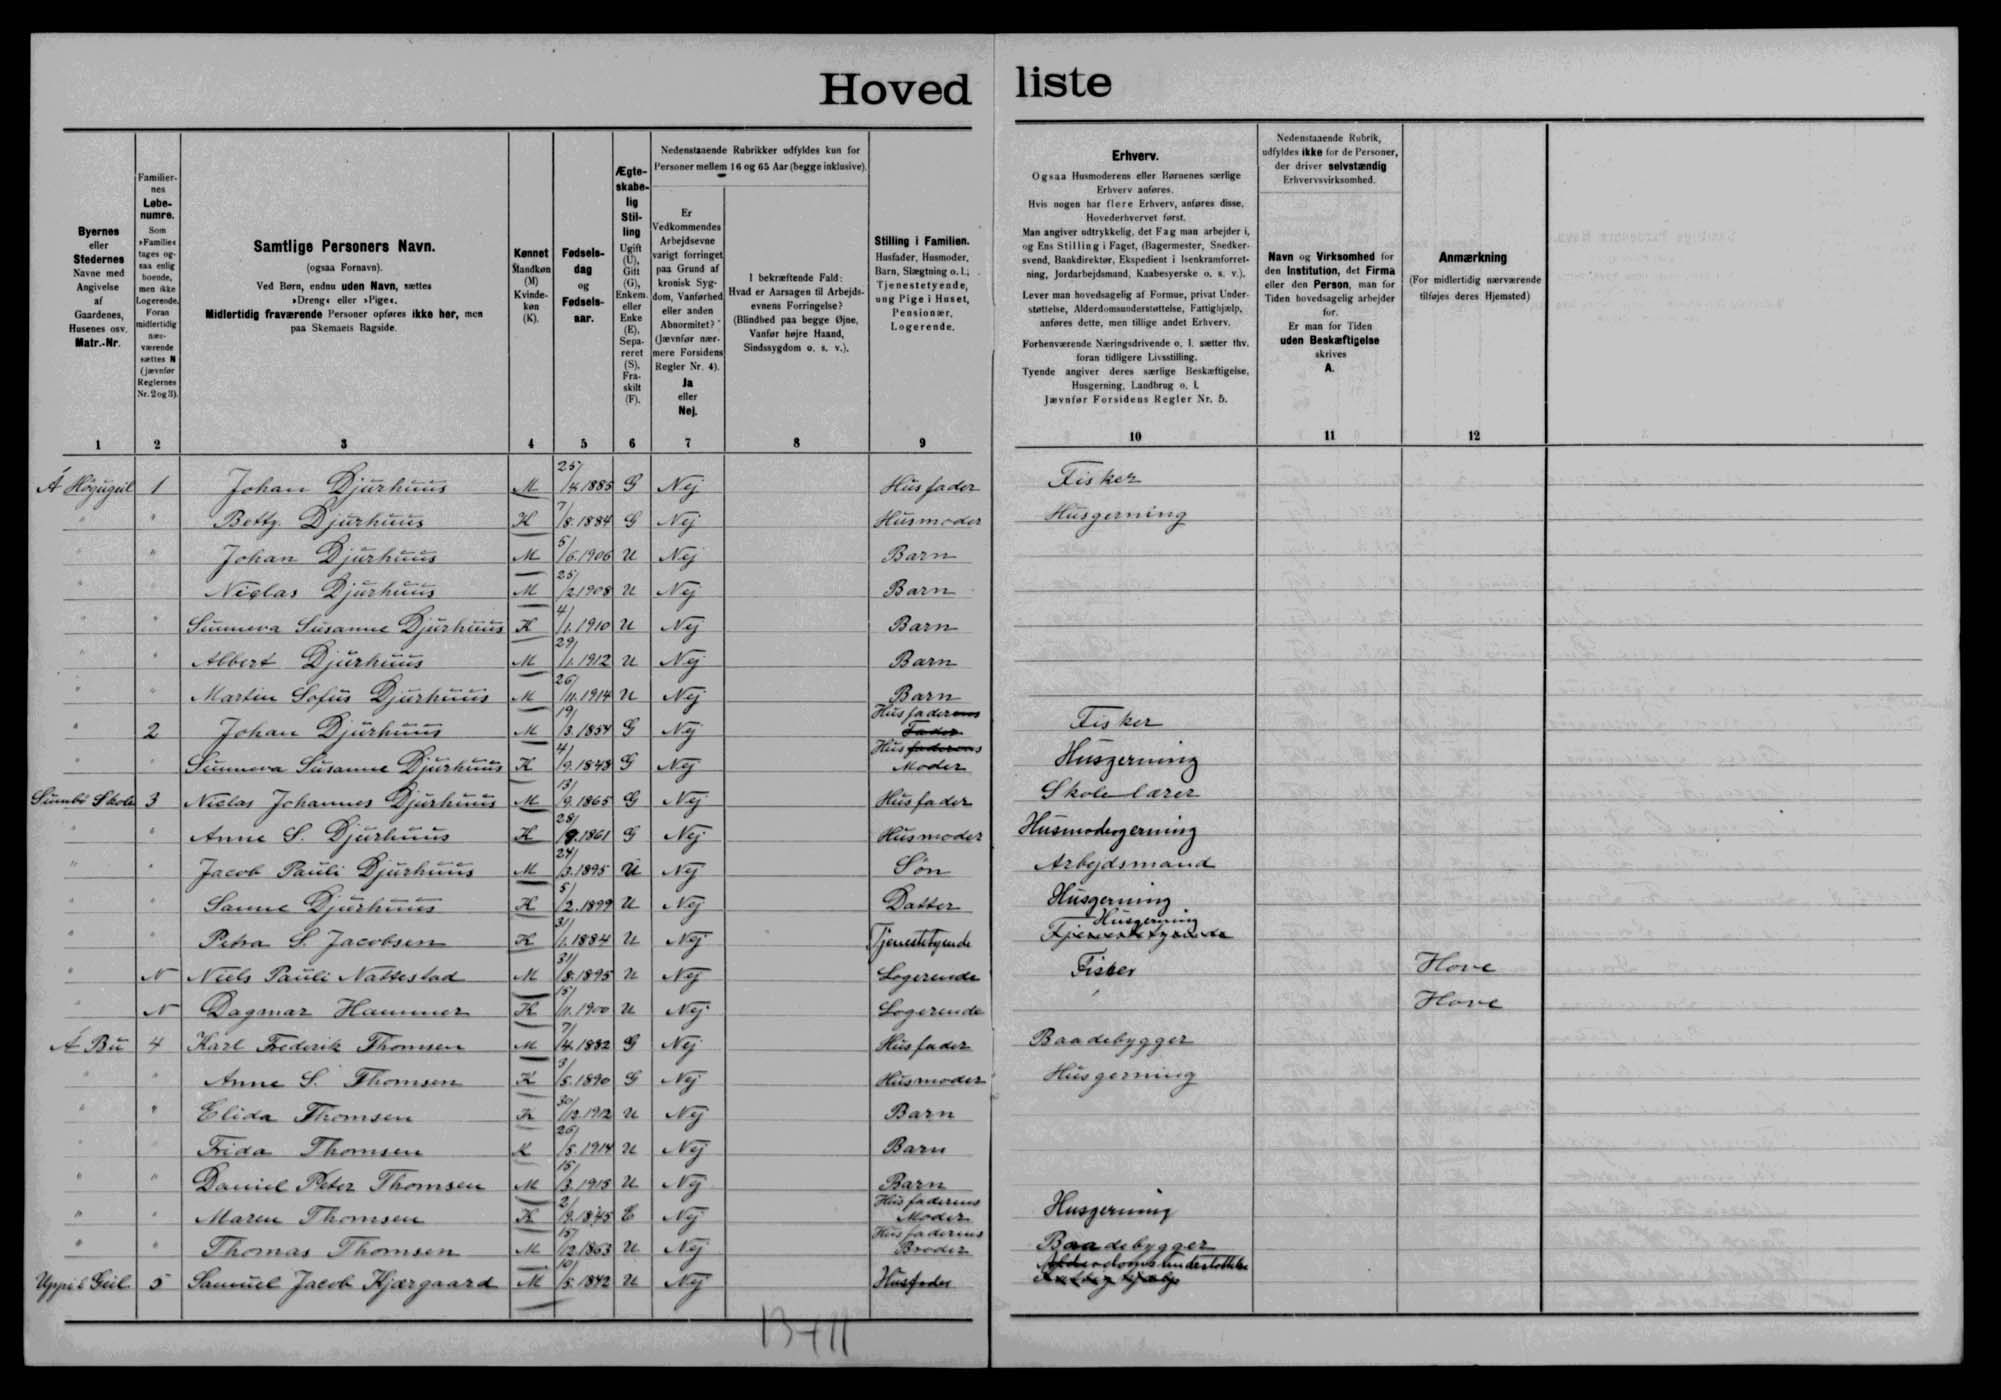 Hovedliste
Byernes eller Stedernes Navne med Angivelse af Gaardenes, Husenes osv. Matr.-Nr.
Familiernes Løbenumre. Som »Familie« tages ogsaa enlig boende, men ikke Logerende. Foran midlertidig nærværende sættes N (jævnfør Reglernes Nr. 2 og 3).
Samtlige Personers Navn.
(ogsaa Fornavn).
Ved Børn, endnu uden Navn, sættes
»Dreng« eller »Pige«.
Midlertidig fraværende Personer opføres ikke her, men
paa Skemaets Bagside.
Kønnet Mandkøn (M) Kvindekøn (K).
Fødselsdag og Fødselsaar.
Ægteskabelig Stilling Ugift (U), Gift (G), Enkem. eller Enke (E), Separeret (S), Fraskilt (F).
Nedenstaaende Rubrikker udfyldes kun for
Personer mellem 16 og 65 Aar (begge inklusive).
Er Vedkommendes Arbejdsevne varigt forringet paa Grund af kronisk Sygdom, Vanførhed eller anden Abnormitet? (Jævnfør nærmere Forsidens Regler Nr. 4). Ja eller Nej.
I bekræftende Fald: Hvad er Aarsagen til Arbejdsevnens Forringelse? (Blindhed paa begge Øjne, Vanfør højre Haand, Sindssygdom o. s. v.).
Stilling i Familien. Husfader, Husmoder, Barn, Slægtning o. l., Tjenestetyende, ung Pige i Huset, Pensionær, Logerende.
Erhverv.
Ogsaa Husmoderens eller Børnenes særlige
Erhverv anføres.
Hvis nogen har flere Erhverv, anføres disse,
Hovederhvervet først.
Man angiver udtrykkelig, det Fag man arbejder i,
og Ens Stilling i Faget, (Bagermester, Snedkersvend, Bankdirektør, Ekspedient i Isenkramforretning, Jordarbejdsmand, Kaabesyerske o. s. v.).
Lever man hovedsagelig af Formue, privat Understøttelse, Alderdomsunderstøttelse, Fattighjælp,
anføres dette, men tillige andet Erhverv.
Forhenværende Næringsdrivende o. l. sætter thv.
foran tidligere Livsstilling.
Tyende angiver deres særlige Beskæftigelse,
Husgerning, Landbrug o. l.
Jævnfør Forsidens Regler Nr. 5.
Nedenstaaende Rubrik,
udfyldes ikke for de Personer,
der driver selvstændig
Erhvervsvirksomhed.
Navn og Virksomhed for
den Institution, det Firma
eller den Person, man for
Tiden hovedsagelig arbejder
for.
Er man for Tiden
uden Beskæftigelse
skrives
A.
Anmærkning
(For midlertidig nærværende
tilføjes deres Hjemsted)
1 2 3 4 5 6 7 8 9 10 11 12
Á Høgugeil 1 Johan Djurhuus M 25/4.1885 G Nej Husfader Fisker
" " Betty Djurhuus K 7/8.1884 G Nej Husmoder Husgerning
" " Johan Djurhuus M 5/6.1906 U Nej Barn
" " Niclas Djurhuus M 25/2.1908 U Nej Barn
" " Sunneva Susanne Djurhuus K 4/1.1910 U Nej Barn
" " Albert Djurhuus M 29/1.1912 U Nej Barn
" " Martin Sofus Djurhuus M 26/11.1914 U Nej Barn
" 2 Johan Djurhuus M 19/3.1854 G Nej Husfaderens Fader Fisker
" " Sunneva Susanne Djurhuus K 4/9.1848 G Nej Husfaderens Moder Husgerning
Sumbø Skole 3 Niclas Johannes Djurhuus M 13/9.1865 G Nej Husfader Skolelærer
" " Anne S. Djurhuus K 28/9.1861 G Nej Husmoder Husmodergerning
" " Jacob Pauli Djurhuus M 24/3.1895 U Nej Søn Arbejdsmand
" " Sanne Djurhuus K 5/2.1899 U Nej Datter Husgerning
" " Petra S. Jacobsen K 31/1.1884 U Nej Tjenestetyende Husgerning Tjenestetyende
" N Niels Pauli Nattestad M 31/8.1895 U Nej Logerende Fisker Hove
" N Dagmar Hammer K 15/11.1900 U Nej Logerende Hove
Á Bu 4 Karl Frederik Thomsen M 7/4.1882 G Nej Husfader Baadebygger
" " Anne S. Thomsen K 3/5.1890 G Nej Husmoder Husgerning
" " Elida Thomsen K 30/12.1912 U Nej Barn
" " Frida Thomsen K 26/5.1914 U Nej Barn
" " Daniel Peter Thomsen M 15/3.1915 U Nej Barn
" " Maren Thomsen K 2/9.1845 E Nej Husfaderens Moder Husgerning
" " Thomas Thomsen M 15/12.1863 U Nej Husfaderens Broder Baadebygger
Uppi i Geil 5 Samuel Jacob Kjærgaard M 10/5.1842 U Nej Husfader Alderdomsunderstøttelse
13+11